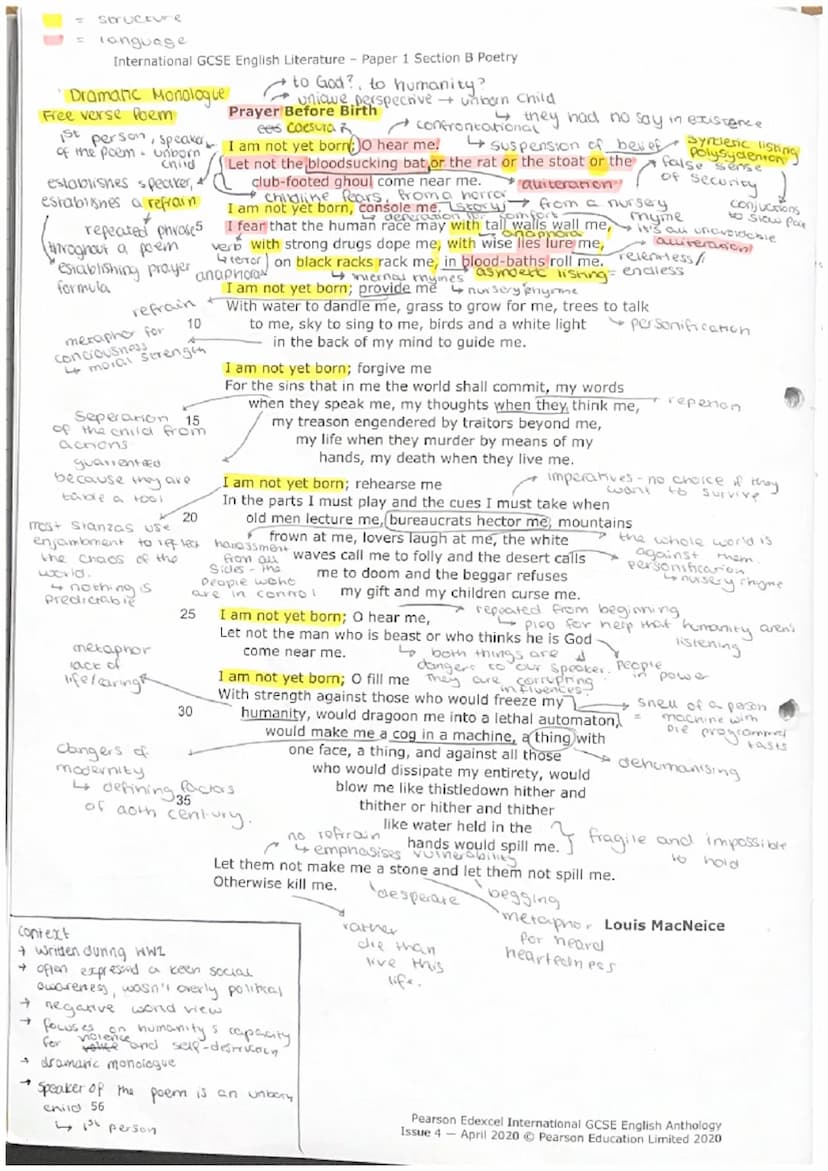 = structure
= language
International GCSE English Literature – Paper 1 Section B Poetry
→ to God?, to humanity?
Dramatic Monologue
→ unique perspective → unborn child
Free verse poem
Prayer Before Birth
↳ they had no say in existence
caesura
→ confrontational
1st person, speaker
of the poem = unborn
child
I am not yet born; O hear me.
↳ suspension of belief
syndetic listing
polysydenton
Let not the bloodsucking bat or the rat or the stoat or the
→ false sense
of security
establishes speaker,
club-footed ghoul come near me.
alliteration
establishes a refrain
childlike fears, from a horror
story
conjuctions
to slow pace
I am not yet born, console me.
→ from a nursery
rhyme
↳ desperation for comfort
repeated phrase
throughout a poem
5
I fear that the human race may with tall walls wall me,
↳ it's an unavoidable
anaphora
alliteration
verb
↳ terror
with strong drugs dope me, with wise lies lure me,
relentless/
endless
establishing prayer
formula
anaphora
on black racks rack me, in blood-baths roll me.
↳ internal rhymes
asyndetic listing =
I am not yet born; provide me
↳ nursery rhyme
refrain
With water to dandle me, grass to grow for me, trees to talk
10
to me, sky to sing to me, birds and a white light
↳ personification
metaphor for
conciousness
↳ moral strength
in the back of my mind to guide me.
I am not yet born; forgive me
For the sins that in me the world shall commit, my words
when they speak me, my thoughts when they think me,
Seperation
of the child from
actions
15
my treason engendered by traitors beyond me,
my life when they murder by means of my
guarienteed
because they are
hands, my death when they live me.
I am not yet born; rehearse me
→ imperatives - no choice if they
want to survive
In the parts I must play and the cues I must take when
20
old men lecture me, bureaucrats hector me, mountains
most stanzas use
enjambment to reflect
the chaos of the
world.
↳ nothing is
predictable
harassment
from all
sides - the
people who
are in control
frown at me, lovers laugh at me, the white
→ the whole world is
against them.
personification
↳ nursery rhyme
waves call me to folly and the desert calls
me to doom and the beggar refuses
my gift and my children curse me.
25
→ repeated from beginning
I am not yet born; O hear me,
↳ plea for help that humanity aren't
listening
Let not the man who is beast or who thinks he is God
come near me.
↳ both things are a
dangers to our speaker.
They are corrupting
influences.
people
in power
metaphor
lack of
life/caring
I am not yet born; O fill me
With strength against those who would freeze my
30
humanity, would dragoon me into a lethal automaton,
→ shell of a person
= machine with
pre programmed
tasks
would make me a cog in a machine, a thing with
Dangers of
modernity
↳ defining factors
of 20th century.
one face, a thing, and against all those
→ dehumanising
who would dissipate my entirety, would
blow me like thistledown hither and
35
thither or hither and thither
like water held in the
hands would spill me.
fragile and impossible
to hold
no refrain
↳ emphasises vulnerability
Let them not make me a stone and let them not spill me.
Otherwise kill me.
desperate
begging
metaphor
for heard
heartedness
Louis MacNeice
rather
die than
live this
life.
Context
→ written during WW2
→ often expressed a keen social
awareness, wasn't overly political
→ negative world view
→ focuses on humanity's capacity
for violence and self-destruction
→ dramatic monologue
→ speaker of the poem is an unborn
child
56
↳ 1st person
Pearson Edexcel International GCSE English Anthology
Issue 4 — April 2020 © Pearson Education Limited 2020